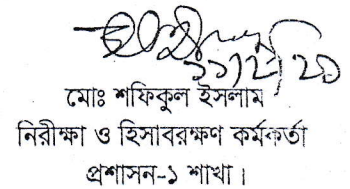 মোঃ শফিকুল ইসলাম
নিরীক্ষা ও হিসাবরক্ষণ কর্মকর্তা
প্রশাসন-১ শাখা।